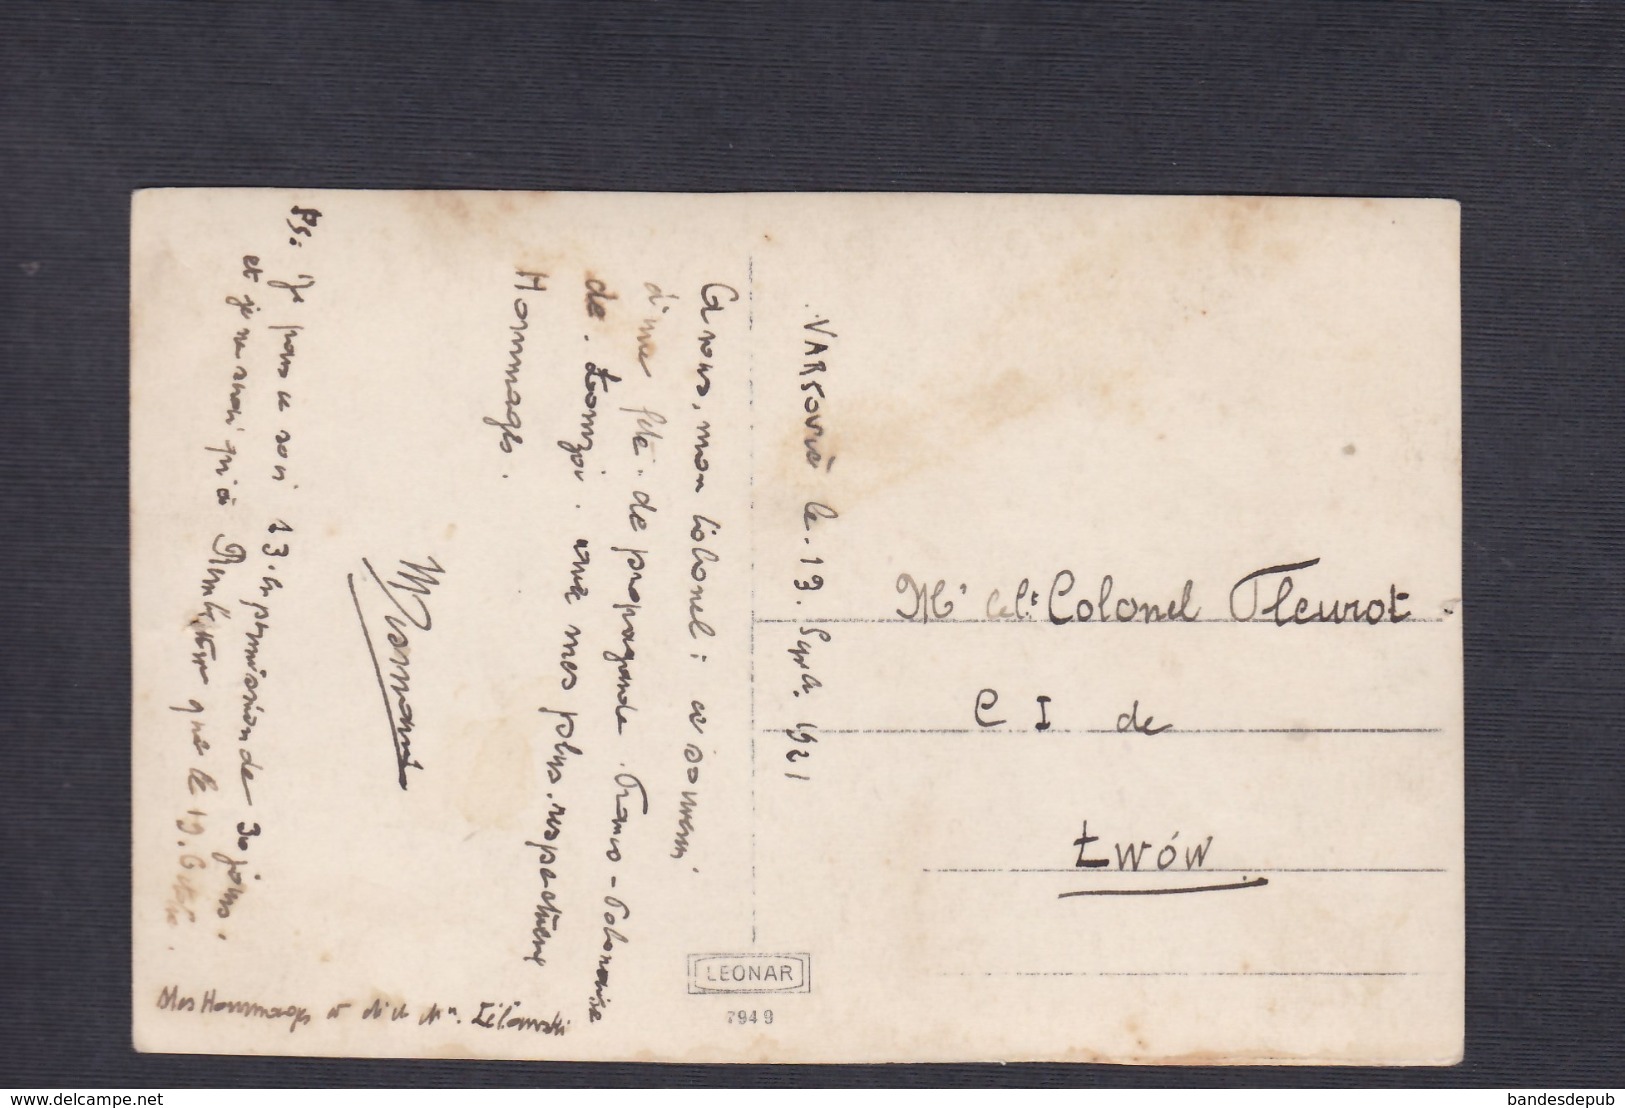 VARSOVIE le 13. Sept. 1921
A vous, mon Colonel ; ce souvenir
d'une fête de propagande Franco-Polonaise
de Łomza. avec mes plus respectueux
Hommages.
PS: Je pars ce soir 13. en permission de 30 jours.
et je ne serai qu'à que le 19. Octobre.
Mes Hommages à
Mr le Lt Colonel Fleurot
C I de
Łwów
LEONAR
7949
www.delcampe.net
bandesdepub